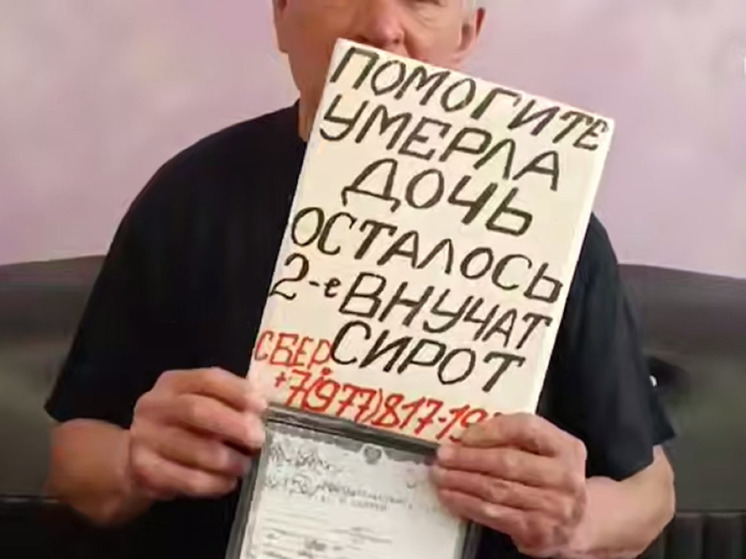 ПОМОГИТЕ
УМЕРЛА
ДОЧЬ
ОСТАЛОСЬ
2-е ВНУЧАТ
СИРОТ
СБЕР.
+7(977)817-19